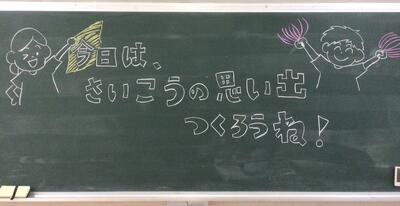 今日は、
さいこうの思い出
つくろうね!